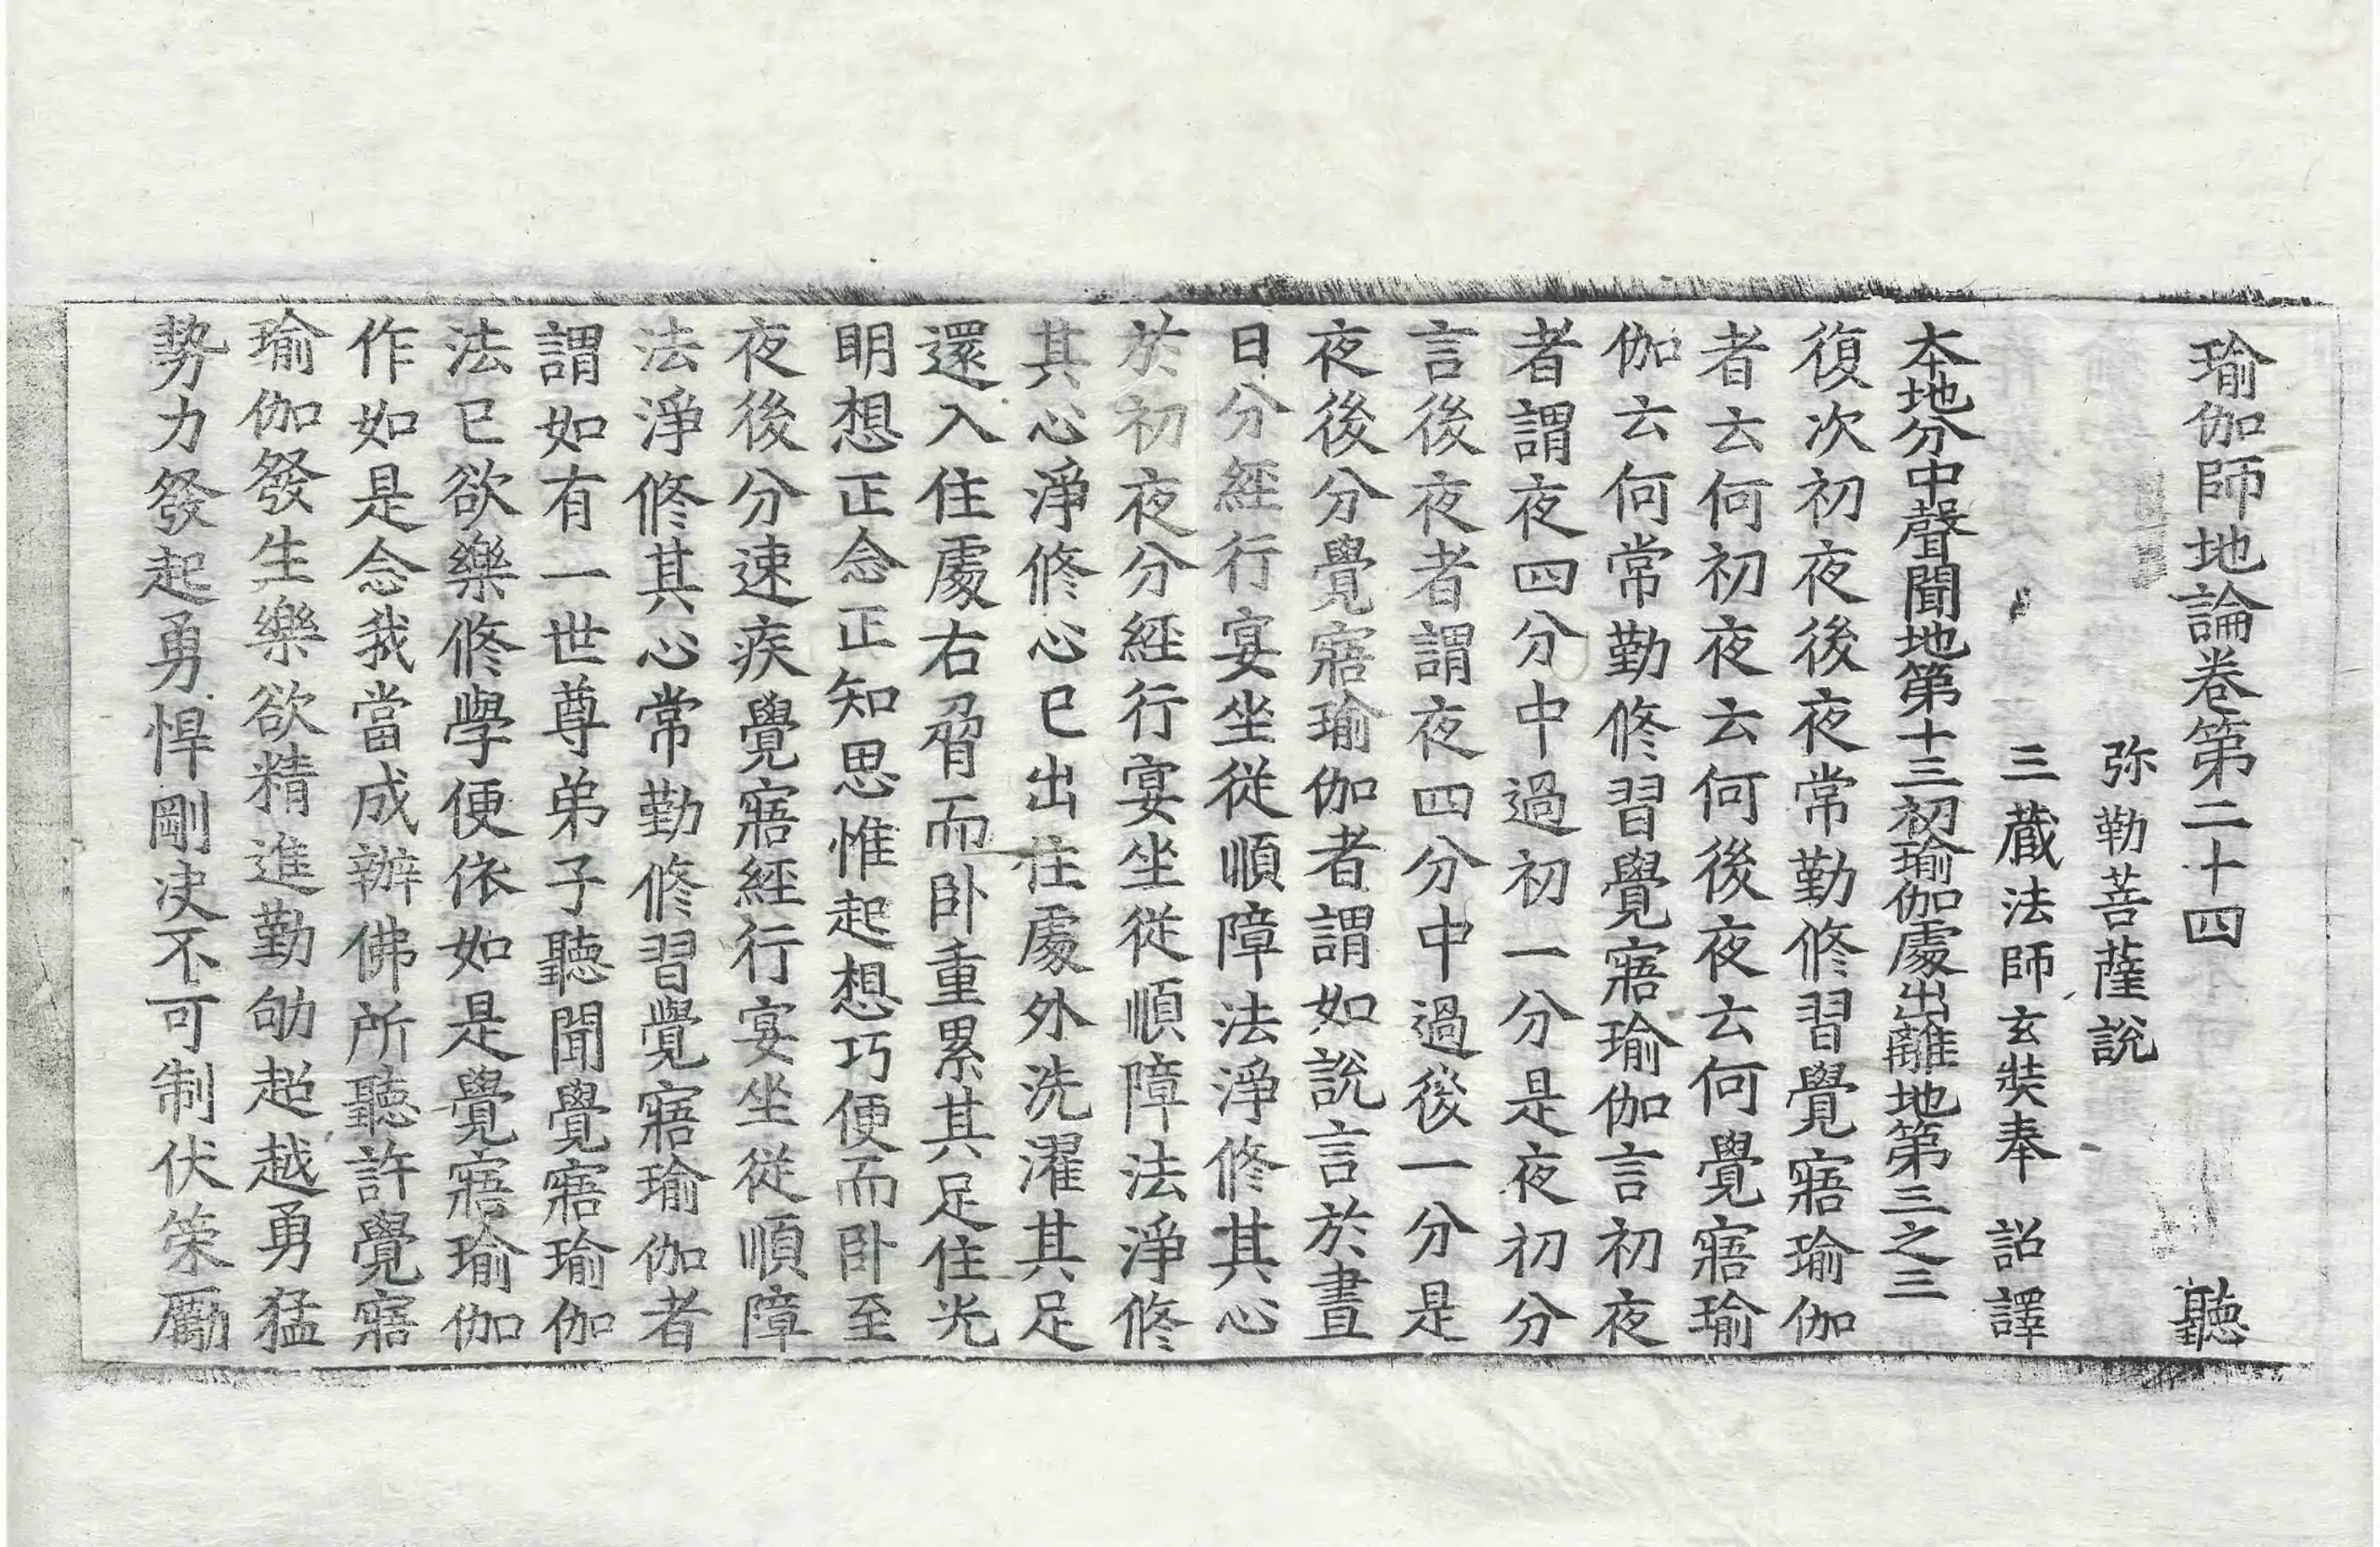 瑜伽師地論卷第二十四 聽
弥勒菩薩說
三藏法師玄奘奉 詔譯
本地分中聲聞地第十三初瑜伽處出離地第三之三
復次初夜後夜常勤修習覺寤瑜伽
者云何初夜云何後夜云何覺寤瑜
伽云何常勤修習覺寤瑜伽言初夜
者謂夜四分中過初一分是夜初分
言後夜者謂夜四分中過後一分是
夜後分覺寤瑜伽者謂如說言於晝
日分經行宴坐從順障法淨修其心
於初夜分經行宴坐從順障法淨修
其心淨修心已出住處外洗濯其足
還入住處右脅而卧重累其足住光
明想正念正知思惟起想巧便而卧至
夜後分速疾覺寤經行宴坐從順障
法淨修其心常勤修習覺寤瑜伽者
謂如有一世尊弟子聽聞覺寤瑜伽
法已欲樂修學便依如是覺寤瑜伽
作如是念我當成辦佛所聽許覺寤
瑜伽發生樂欲精進勤劬超越勇猛
勢力發起勇悍剛决不可制伏策勵